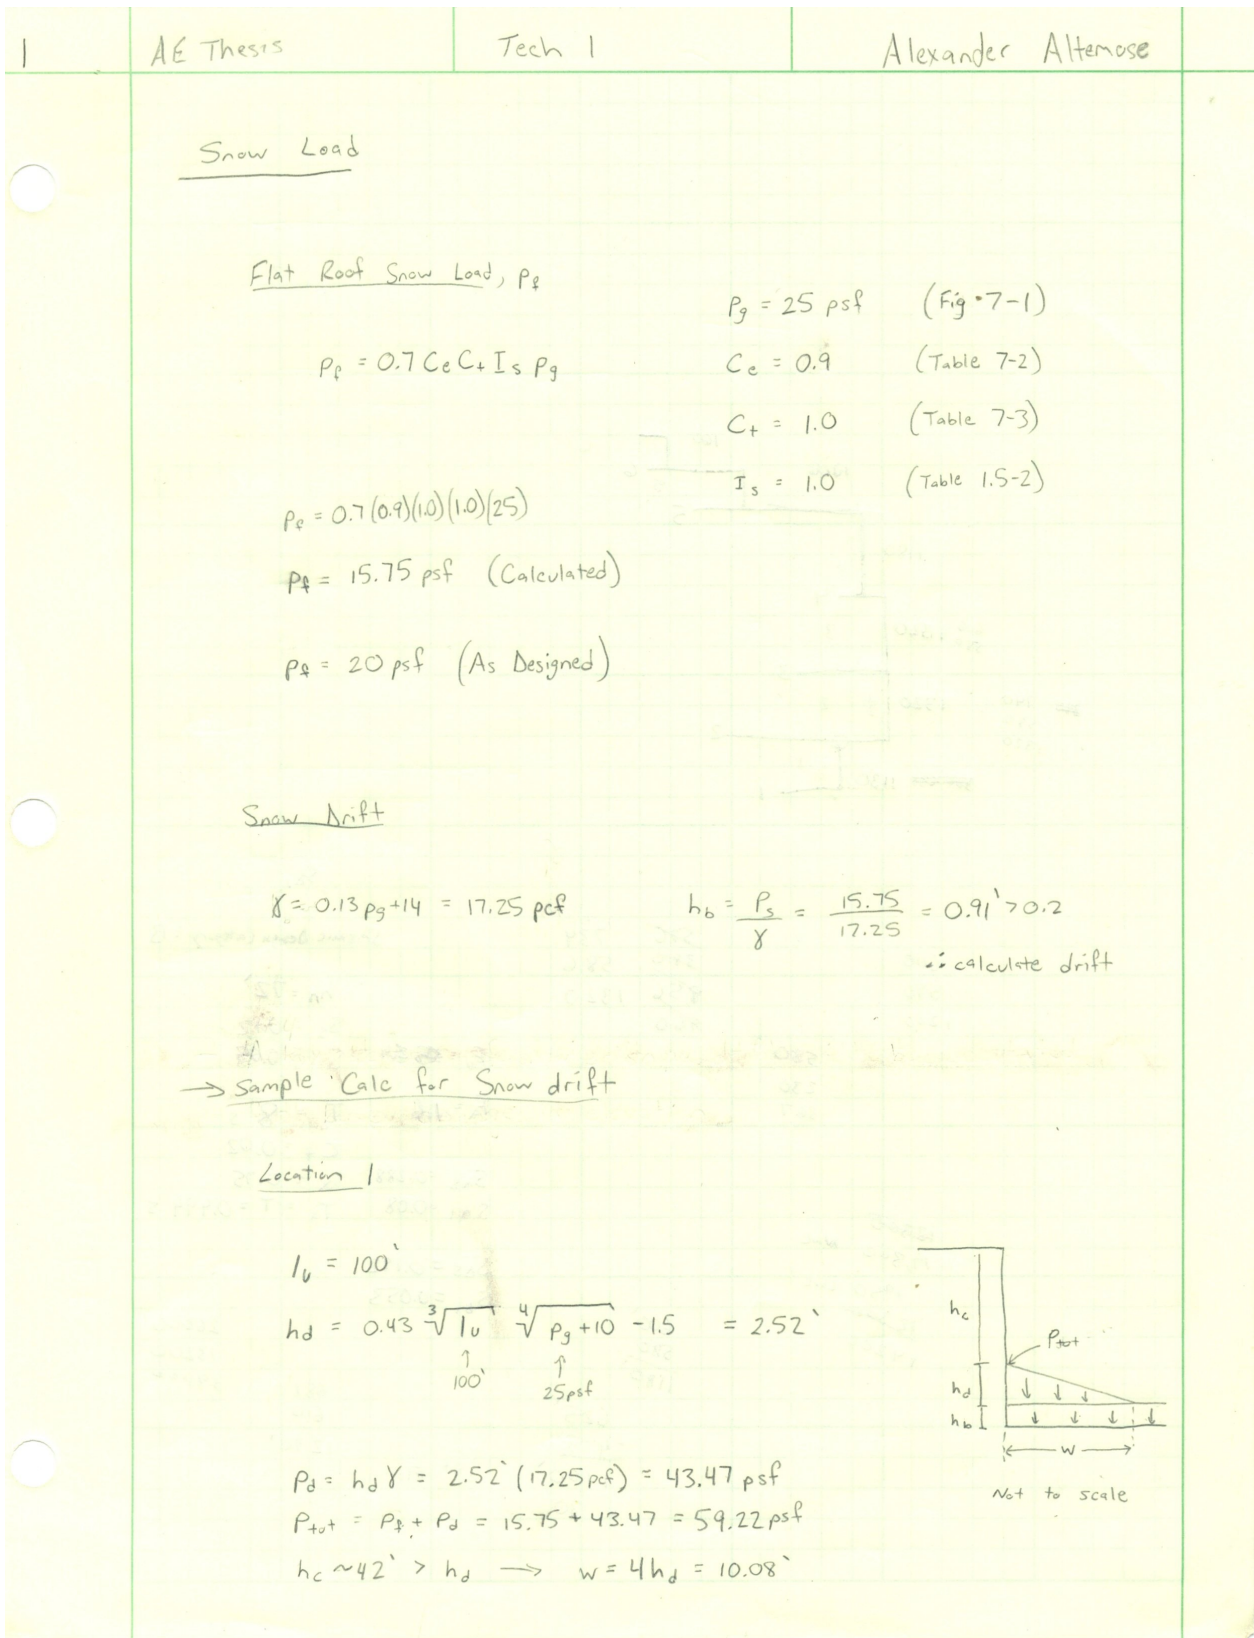 1 AE Thesis Tech 1 Alexander Altemose
Snow Load
Flat Roof Snow Load, Pf
Pg = 25 psf (Fig. 7-1)
Pf = 0.7 Ce Ct Is Pg
Ce = 0.9 (Table 7-2)
Ct = 1.0 (Table 7-3)
Is = 1.0 (Table 1.5-2)
Pf = 0.7(0.9)(1.0)(1.0)(25)
Pf = 15.75 psf (Calculated)
Pf = 20 psf (As Designed)
Snow Drift
γ = 0.13 Pg + 14 = 17.25 pcf
hb = Ps/γ = 15.75/17.25 = 0.91' > 0.2
∴ calculate drift
→ Sample Calc for Snow drift
Location 1
lu = 100'
hd = 0.43 ∛lu ∜Pg+10 - 1.5 = 2.52'
↑ ↑
100' 25psf
Pd = hd γ = 2.52' (17.25 pcf) = 43.47 psf
Ptot = Pf + Pd = 15.75 + 43.47 = 59.22 psf
hc ~42' > hd → w = 4hd = 10.08'
hc
Ptot
hd
hb
w
Not to scale